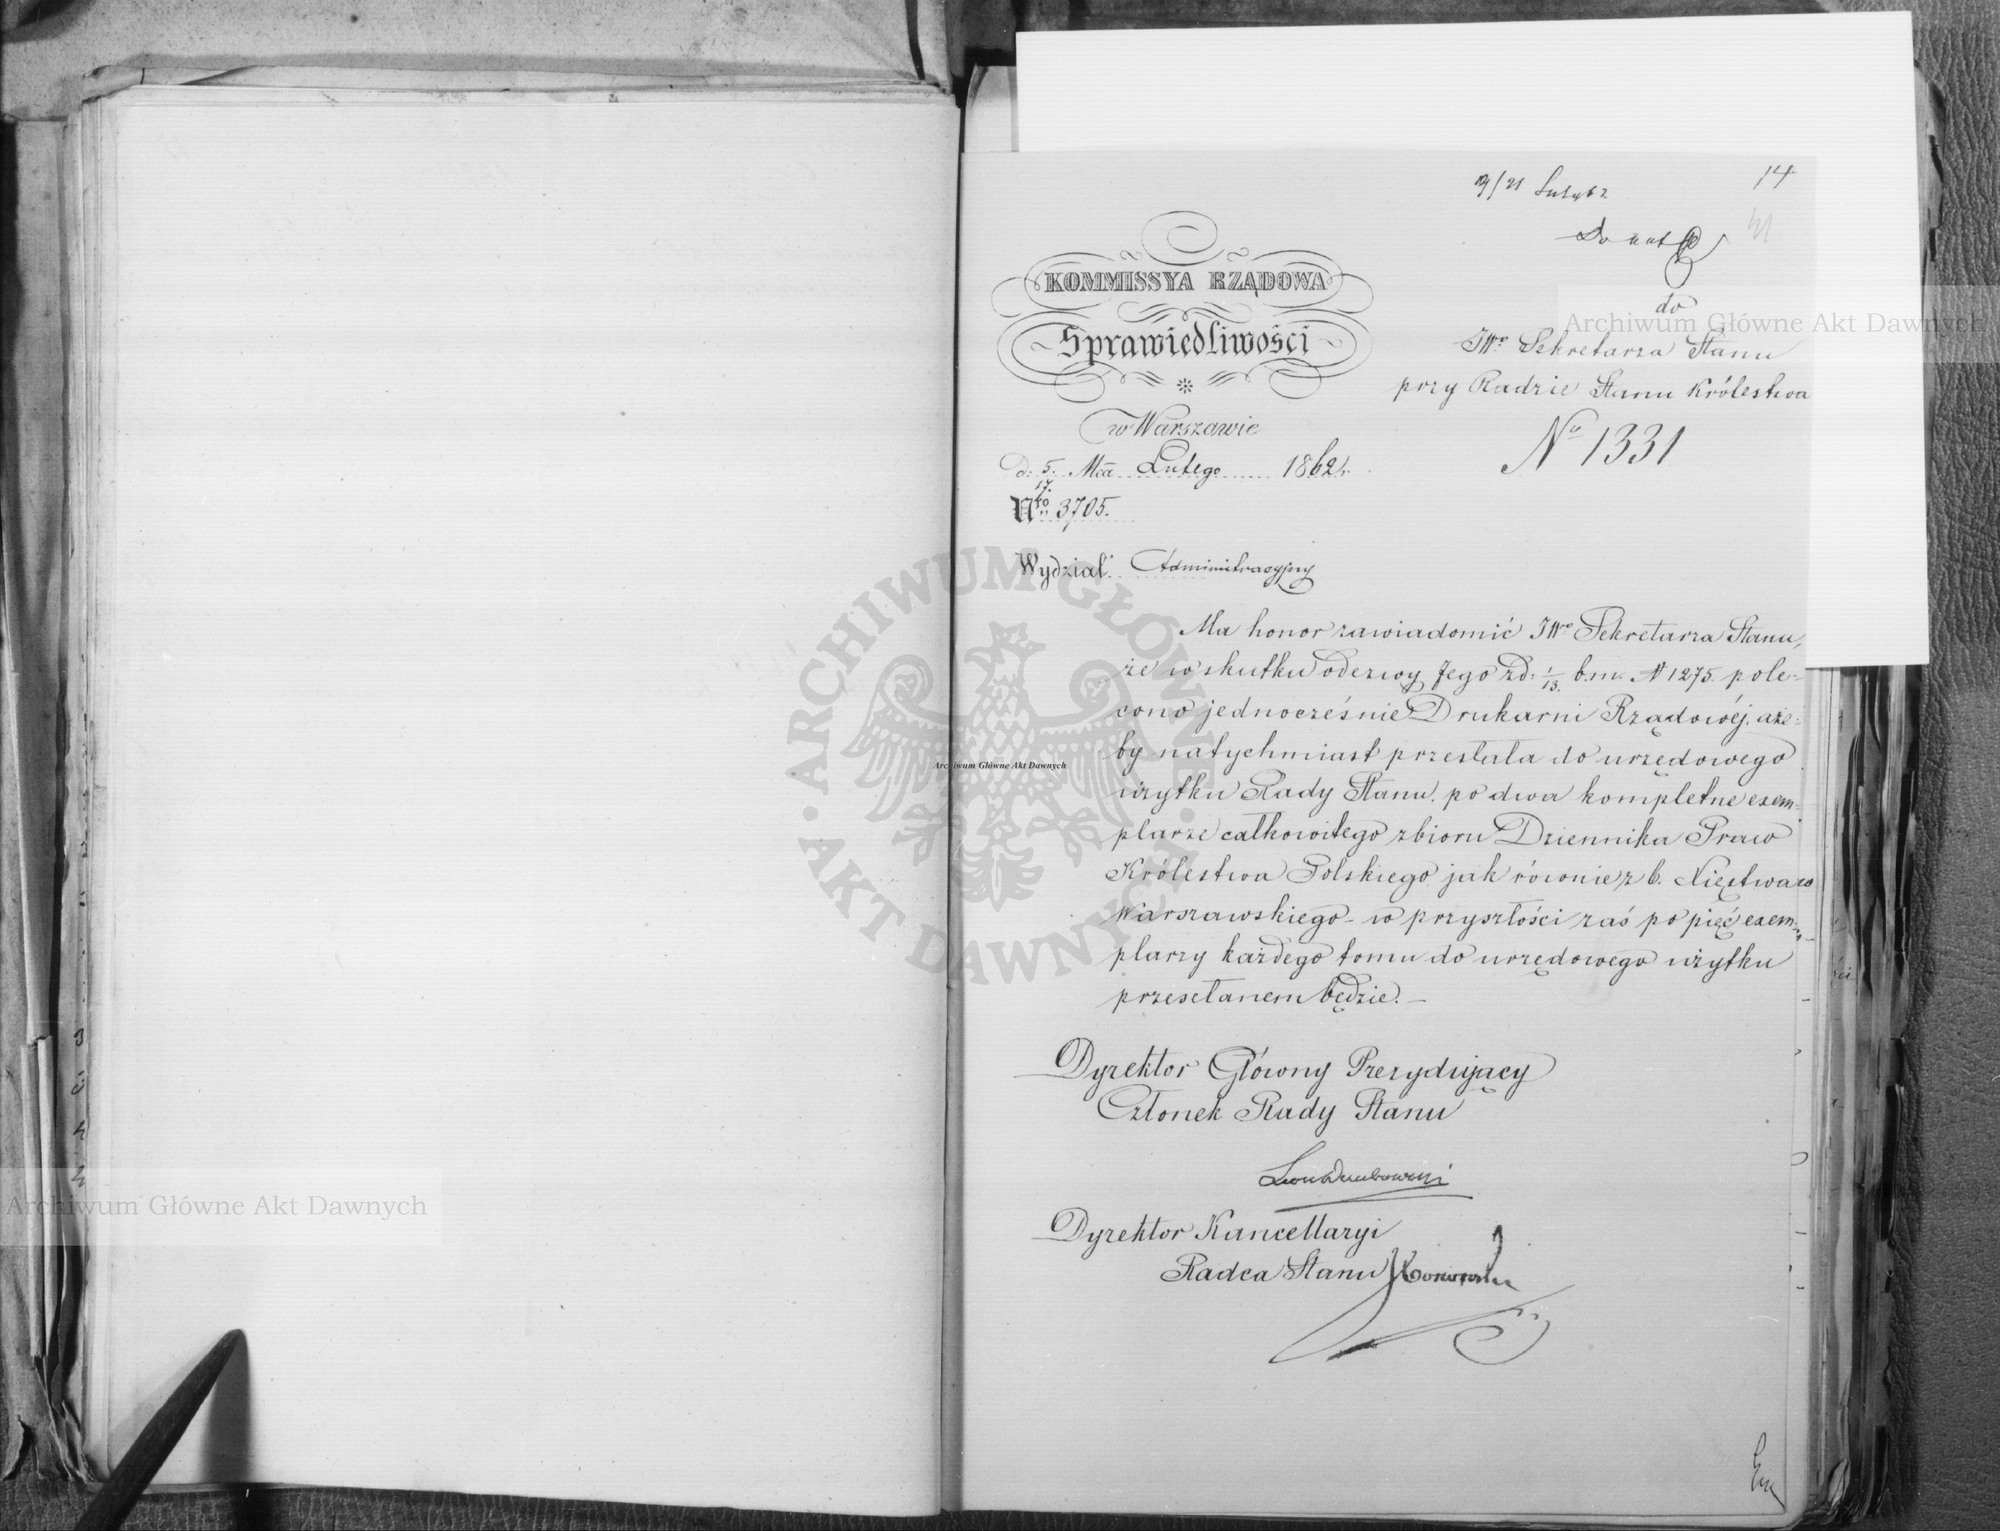 14
9/21 Lut 62
Do akt
KOMMISSYA RZĄDOWA
Sprawiedliwości
w Warszawie
D: 5/17. Mca Lutego 1862 r.
Nro 3705.
Wydział Adminitracyjny
do
JWo Sekretarza Stanu
przy Radzie Stanu Królestwa
No 1331
Ma honor zawiadomić JWo Sekretarza Stanu,
że w skutku odezwy Jego z d: 1/13. b. m. N 1275. pole-
cono jednocześnie Drukarni Rządowéj, aże-
by natychmiast przesłała do urzędowego
użytku Rady Stanu, po dwa kompletne exem-
plarze całkowitego zbioru Dziennika Praw
Królestwa Polskiego, jak równie z b. Xięstwa
Warszawskiego - w przyszłości zaś po pięć exem-
plarzy każdego tomu do urzędowego użytku
przesełanem będzie. —
Dyrektor Główny Prezydujący
Członek Rady Stanu
Leon Dembowski
Dyrektor Kancellaryi
Radca Stanu
Archiwum Główne Akt Dawnych
Archiwum Główne Akt Dawnych
Archiwum Główne Akt Dawnych
ARCHIWUM GŁÓWNE · AKT DAWNYCH ·